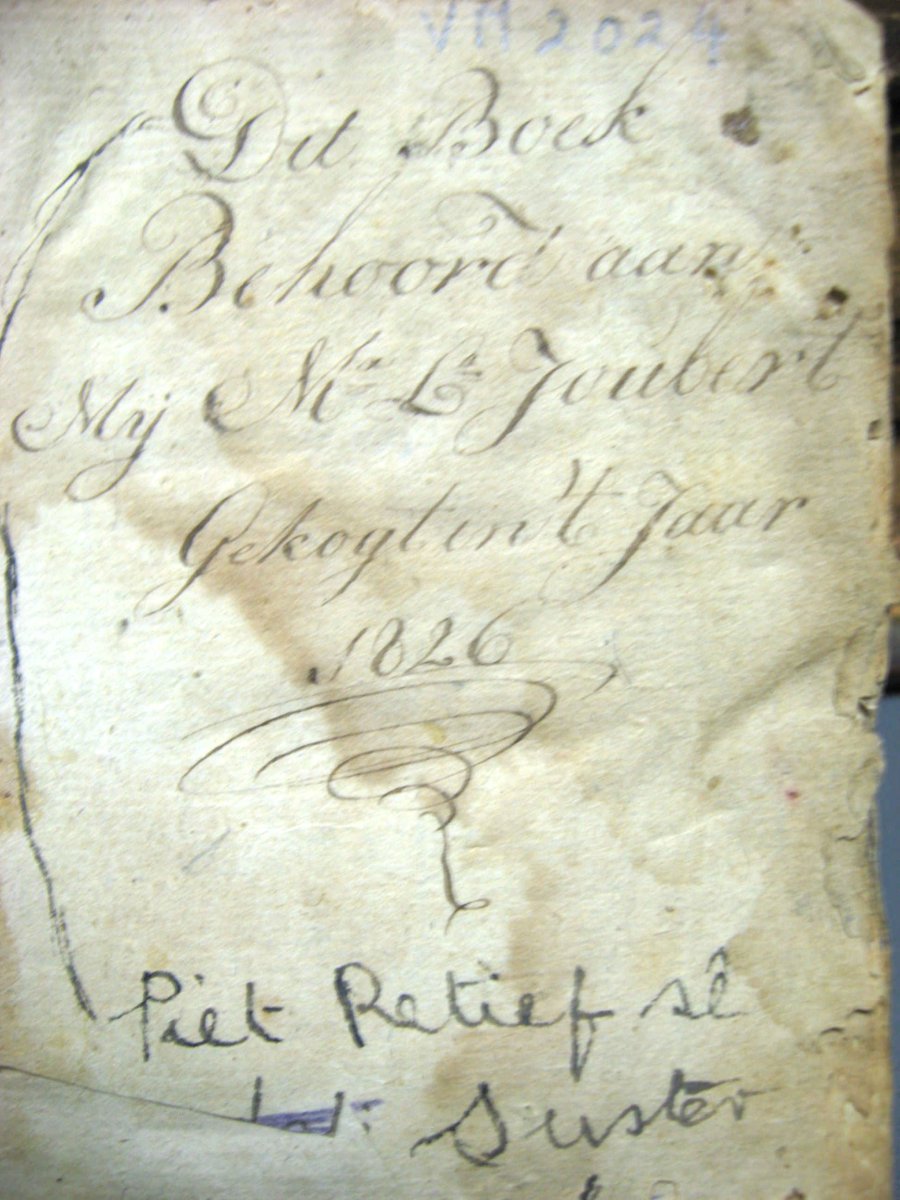 VM 2024
Dit Boek
Behoord aan
Mij Mr Ls Joubert
Gekogt in't Jaar
1826
Piet Retief sê
Suster